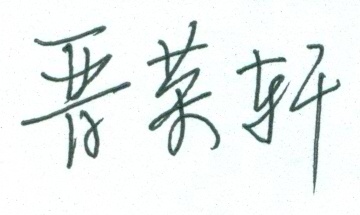 晋荣轩